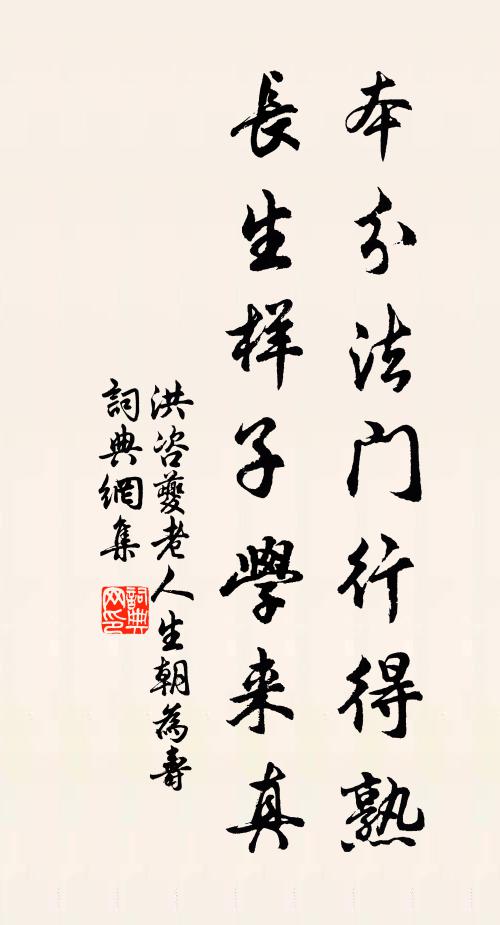 本分法門行得熟
長生样子學来真
洪咨夔老人生朝為壽
詞典網集
詞典网印